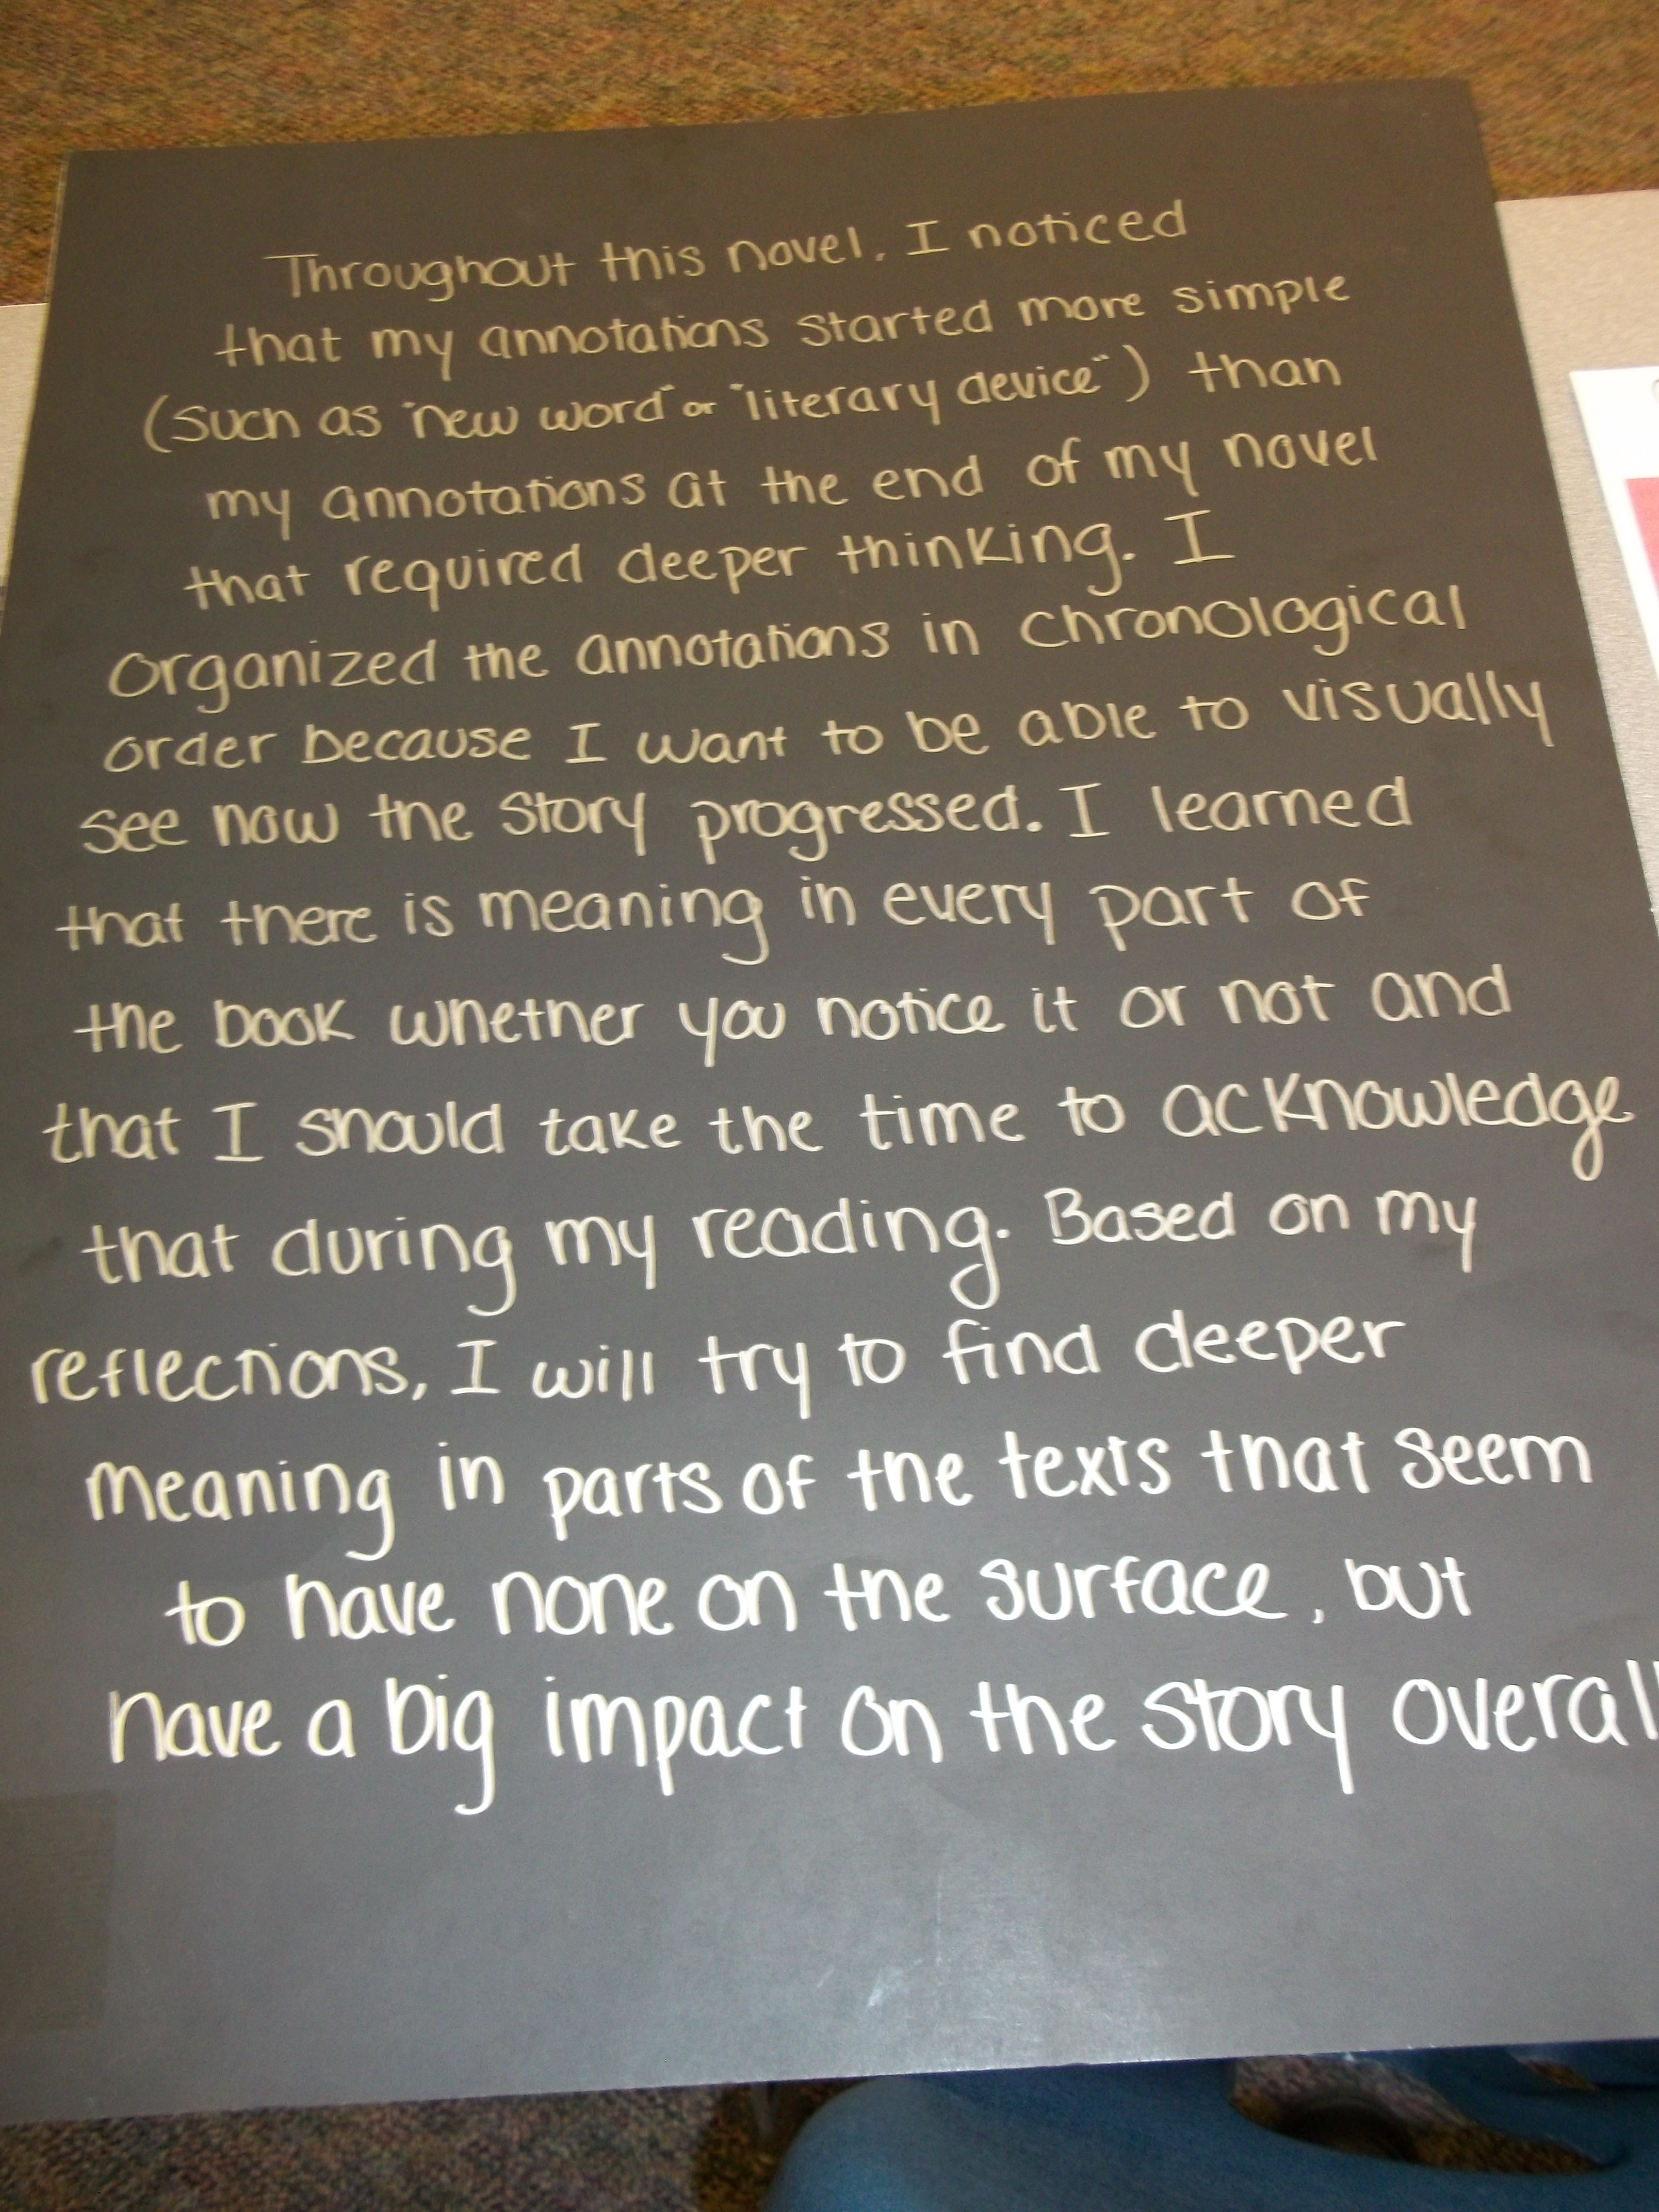 Throughout this novel, I noticed
that my annotations started more simple
(such as "new word" or "literary device") than
my annotations at the end of my novel
that required deeper thinking. I
organized the annotations in chronological
order because I want to be able to visually
see how the story progressed. I learned
that there is meaning in every part of
the book whether you notice it or not and
that I should take the time to acknowledge
that during my reading. Based on my
reflections, I will try to find deeper
meaning in parts of the texts that seem
to have none on the surface, but
have a big impact on the story overall